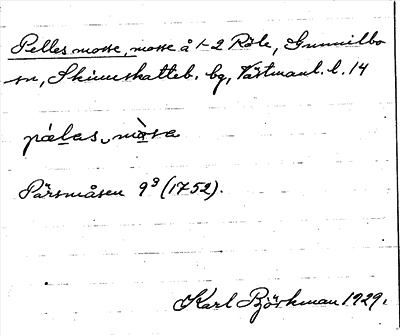 Pelles mosse, mosse å 1-2 Röle, Gunnilbo
sn, Skinnskatteb. bg, Västmanl. l. 14
pælas mòsa
Pärsmåsen 9³ (1752).
Karl Björkman 1929.